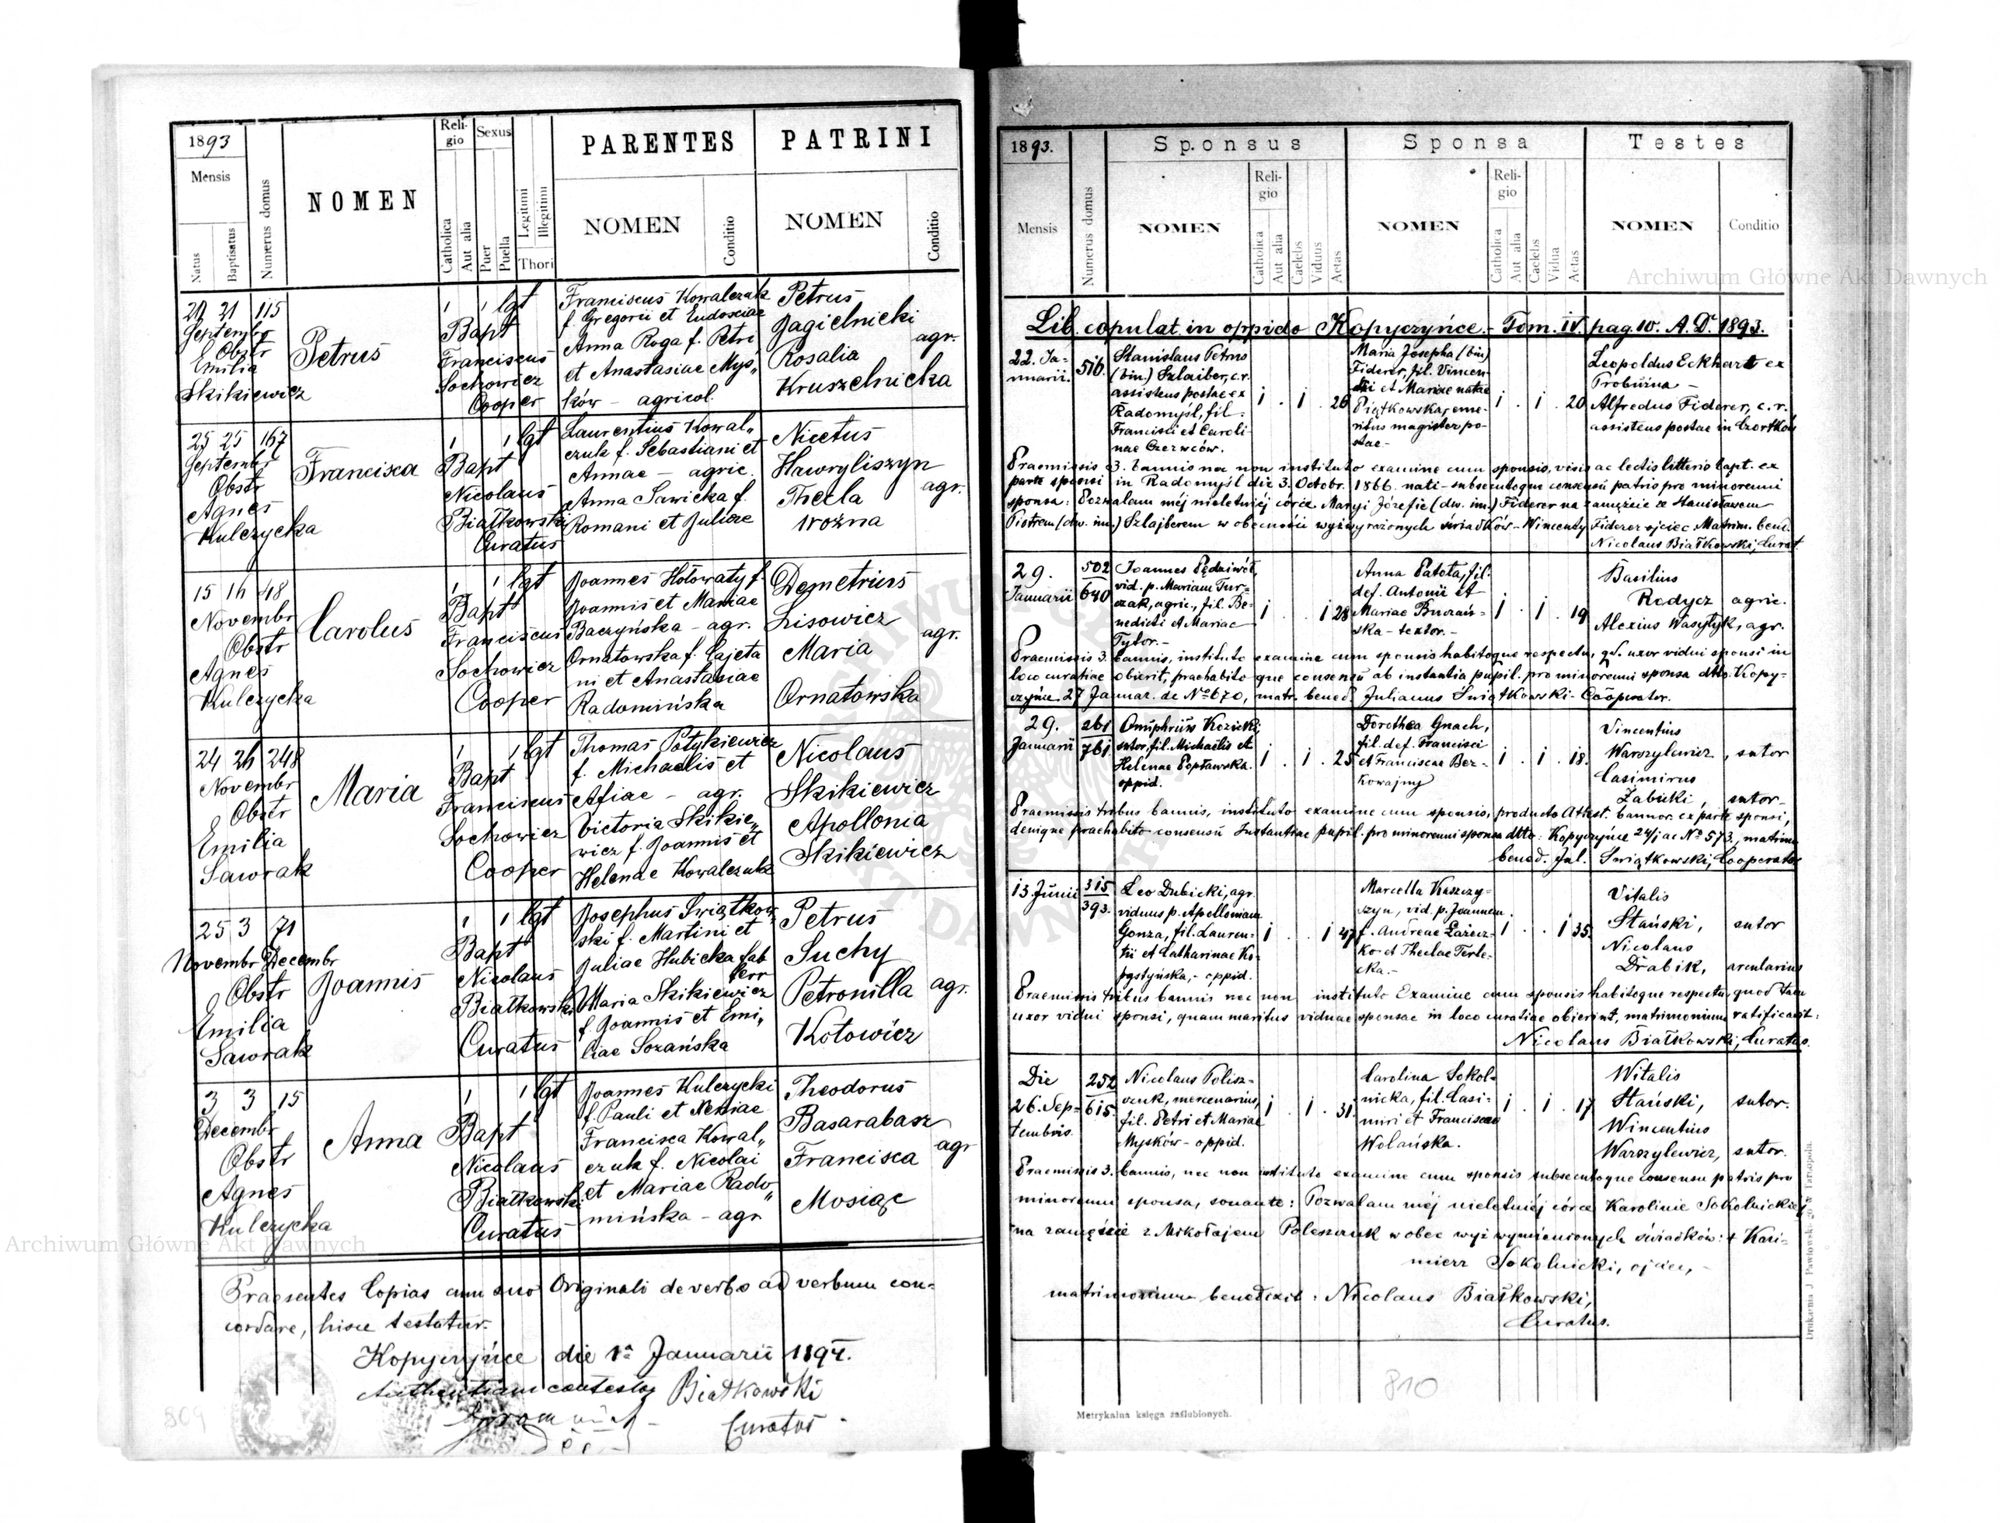 1893
Mensis
Natus
Baptisatus
Numerus domus
NOMEN
Religio
Catholica
Aut alia
Sexus
Puer
Puella
Legitimi
Illegitimi
Thori
PARENTES
NOMEN
Conditio
PATRINI
NOMEN
Conditio
21 115
Septembr
Obstr
Emilia
Skikiewicz
Petrus
1 1 lgt
Bapt
Franciscus
Sochowicz
Cooper
Franciscus Kowalczuk
f. Gregorii et Eudosciae
Anna Roga f. Petri
et Anastasiae Mys„
ków – agricol.
Petrus
Jagielnicki
agr.
Rosalia
Kruszelnicka
25 25 167
Septembr
Obstr
Agnes
Kulczycka
Francisca
1 1 lgt
Bapt
Nicolaus
Białkowski
Curatus
Laurentius Kowal„
czuk f. Sebastiani et
Annae – agric.
Anna Sawicka f.
Romani et Juliae
Nicetus
Hawryliszyn
agr.
Thecla
Woźna
15 16 48
Novembr
Obstr
Agnes
Kulczycka
Carolus
1 1 lgt
Bapt
Franciscus
Sochowicz
Cooper
Joannes Hołowaty f.
Joannis et Mariae
Baczyńska – agr.
Ornatowska f. Cajeta
ni et Anastasiae
Radomińska
Demetrius
Lisowicz
agr.
Maria
Ornatowska
24 26 248
Novembr
Obstr
Emilia
Sawrak
Maria
1 1 lgt
Bapt
Franciscus
Sochowicz
Cooper
Thomas Potykiewicz
f. Michaelis et
Afiae – agr.
Victoria Skikie„
wicz f. Joannis et
Helenae Kowalczuk
Nicolaus
Skikiewicz
Apollonia
Skikiewicz
25 3 71
Novembr Decembr
Obstr
Emilia
Sawrak
Joannis
1 1 lgt
Bapt
Nicolaus
Białkowski
Curatus
Josephus Swiątkow„
ski f. Martini et
Juliae Hubicka fab
ferr
Maria Skikiewicz
f. Joannis et Emi„
liae Sozańska
Petrus
Suchy
Petronilla agr.
Kotowicz
3 3 15
Decembr
Obstr
Agnes
Kulczycka
Anna
1 1 lgt
Bapt
Nicolaus
Białkowski
Curatus
Joannes Kulczycki
f. Pauli et Xeniae
Francisca Kowal„
czuk f. Nicolai
et Mariae Rado„
mińska – agr.
Theodorus
Basarabasz
agr
Francisca
Mosiąc
Praesentes Copias cum suo Originali de verbo ad verbum con-
cordare, hisce testatur.
Kopyczyńce die 1a Januarii 1894.
Białkowski
Curatus.
809
1893.
Mensis
Numerus domus
Sponsus
NOMEN
Religio
Catholica
Aut alia
Caelebs
Viduus
Aetas
Sponsa
NOMEN
Religio
Catholica
Aut alia
Caelebs
Vidua
Aetas
Testes
NOMEN
Conditio
Lib. copulat. in oppido Kopyczyńce. – Tom. IV. pag. 10. A. D. 1893.
22. Ja-
nuarii.
516.
Stanislaus Petrus
(bin.) Szlaiber, c. r.
assistens postae ex
Radomyśl, fil.
Francisci et Caroli-
nae Czerwców.
1 . 1 . 26
Maria Josepha (bin)
Fiderer, fil. Vincen-
tii et Mariae natae
Piątkowska, eme-
ritus magister po-
stae –
1 . 1 . 20
Leopoldus Eckhart ex
Probużna –
Alfredus Fiderer, c. r.
assistens postae in Czortków
Praemissis 3. bannis nec non instituto examine cum sponsis, visis ac lectis litteris bapt. ex
parte sponsi in Radomyśl die 3. Octobr. 1866. nati – subsecutoque consensu patris pro minorenni
sponsa: Pozwalam mej nieletniej córce Maryi Józefie (dw. im.) Fiderer na zamęzcie ze Stanisławem
Piotrem (dw. im.) Szlajberem w obecności wyżwyrażonych świadków – Wincenty Fiderer ojciec. Matrim. bened.
Nicolaus Białkowski, Curat
29.
Januarii
502
640
Joannes Pędziwiat,
vid. p. Mariam Tur-
czak, agric., fil. Be-
nedicti et Mariae
Tytor. –
1 . . 1 28
Anna Patota, fil.
def. Antonii et
Mariae Buczań-
ska – textor. –
1 . 1 . 19
Basilius
Redycz agric.
Alexius Wasylyk, agr.
Praemissis 3. bannis, instituto examine cum sponsis habitoque respectu, qd. uxor vidui sponsi in
loco curatiae obierit, praehabito que consensu ab instantia pupil. pro minorenni sponsa dtto. Kopy-
czyńce 27 Januar. de No 670, matr. bened. Julianus Swiątkowski – Cooperator.
29.
Januarii
261
761
Onuphrius Kozicki,
sutor, fil. Michaelis et
Helenae Popławska.
oppid.
1 . 1 . 25
Dorothea Gnach,
fil. def. Francisci
et Franciscae Ber-
kowajny
1 . 1 . 18.
Vincentius
Warszylewicz, sutor
Casimirus
Zabicki, sutor –
Praemissis tribus bannis, instituto examine cum sponsis, producto Attest. bannor. ex parte sponsi,
denique praehabito consensu Instantiae pupil. pro minorenni sponsa dtto: Kopyczyńce 24/j ac No 573, matrim.
bened. Jul. Swiątkowski, Cooperator
13 Junii
315
393.
Leo Dubicki, agr.
viduus p. Apolloniam
Gonza, fil. Lauren-
tii et Catharinae Ko-
pystyńska, – oppid.
1 . . 1 47
Marcella Kaszczy-
szyn, vid. p. Joannem
f. Andreae Łazicz-
ko et Theclae Terle-
cka. –
1 . . 1 35.
Vitalis
Stański, sutor
Nicolaus
Drabik, arcularius
Praemissis tribus bannis nec non instituto Examine cum sponsis habitoque respectu, quod tam
uxor vidui sponsi, quam maritus viduae sponsae in loco curatiae obierint, matrimonium ratificavit:
Nicolaus Białkowski, Curatus.
Die
26. Sep-
tembris
252
615
Nicolaus Polisz-
czuk, mercenarius,
fil. Petri et Mariae
Mysków – oppid.
1 . 1 . 31.
Carolina Sokol-
nicka, fil. Casi-
miri et Franciscae
Wolańska.
1 . 1 . 17
Witalis
Stański, sutor.
Wincentius
Warszylewicz, sutor.
Praemissis 3. bannis, nec non instituto examine cum sponsis subsecutoque consensu patris pro
minorenni sponsa, sonante: Pozwalam mej nieletniej córce Karolinie Sokolnickiej
na zamęście z Mikołajem Poleszczuk wobec wyż wymienionych świadków: + Kazi-
mierz Sokolnicki, ojciec, –
matrimonium benedixit: Nicolaus Białkowski,
Curatus.
810
Metrykalna księga zaślubionych.
Drukarnia J. Pawłowskiego w Tarnopolu.
Archiwum Główne Akt Dawnych
Archiwum Główne Akt Dawnych